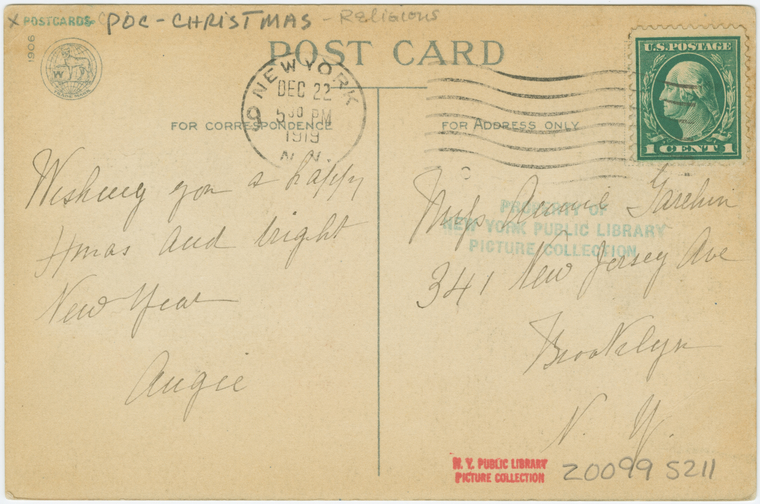 X POSTCARDS POC - CHRISTMAS - Religious
1906
POST CARD
NEW YORK
DEC 22
5 30 PM
1919
N.N.
U.S. POSTAGE
1 CENT 1
FOR CORRESPONDENCE
Wishing you a happy
Xmas and bright
New Year
Angie
FOR ADDRESS ONLY
PROPERTY OF
NEW YORK PUBLIC LIBRARY
PICTURE COLLECTION
Miss Annie
341 New Jersey Ave
Brooklyn
N. Y.
N. Y. PUBLIC LIBRARY
PICTURE COLLECTION
20099 5211